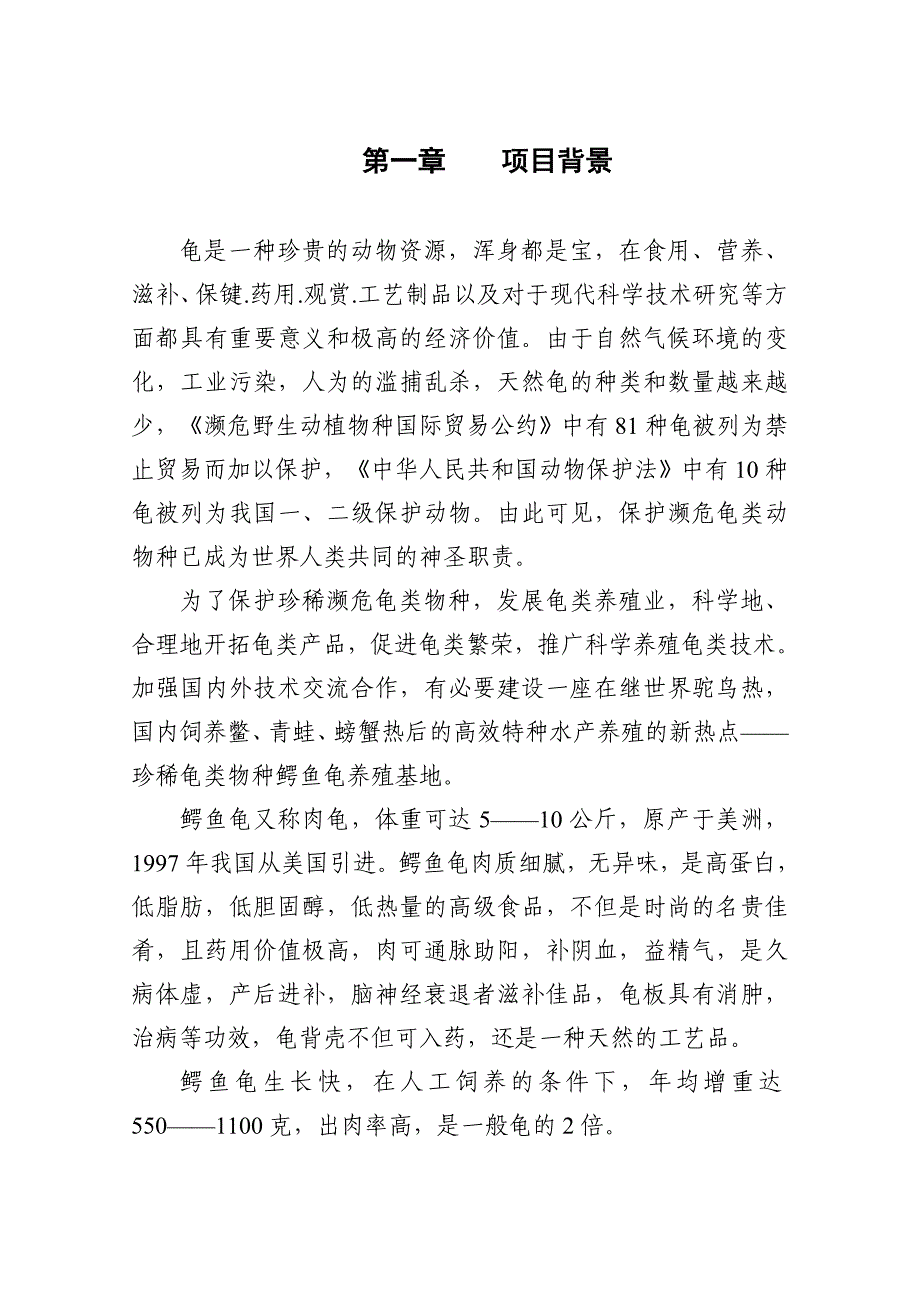 第一章　　项目背景
龟是一种珍贵的动物资源，浑身都是宝，在食用、营养、
滋补、保键.药用.观赏.工艺制品以及对于现代科学技术研究等方
面都具有重要意义和极高的经济价值。由于自然气候环境的变
化，工业污染，人为的滥捕乱杀，天然龟的种类和数量越来越
少，《濒危野生动植物种国际贸易公约》中有 81 种龟被列为禁
止贸易而加以保护，《中华人民共和国动物保护法》中有 10 种
龟被列为我国一、二级保护动物。由此可见，保护濒危龟类动
物种已成为世界人类共同的神圣职责。
为了保护珍稀濒危龟类物种，发展龟类养殖业，科学地、
合理地开拓龟类产品，促进龟类繁荣，推广科学养殖龟类技术。
加强国内外技术交流合作，有必要建设一座在继世界驼鸟热，
国内饲养鳖、青蛙、螃蟹热后的高效特种水产养殖的新热点——
珍稀龟类物种鳄鱼龟养殖基地。
鳄鱼龟又称肉龟，体重可达 5——10 公斤，原产于美洲，
1997 年我国从美国引进。鳄鱼龟肉质细腻，无异味，是高蛋白，
低脂肪，低胆固醇，低热量的高级食品，不但是时尚的名贵佳
肴，且药用价值极高，肉可通脉助阳，补阴血，益精气，是久
病体虚，产后进补，脑神经衰退者滋补佳品，龟板具有消肿，
治病等功效，龟背壳不但可入药，还是一种天然的工艺品。
鳄鱼龟生长快，在人工饲养的条件下，年均增重达
550——1100 克，出肉率高，是一般龟的 2 倍。